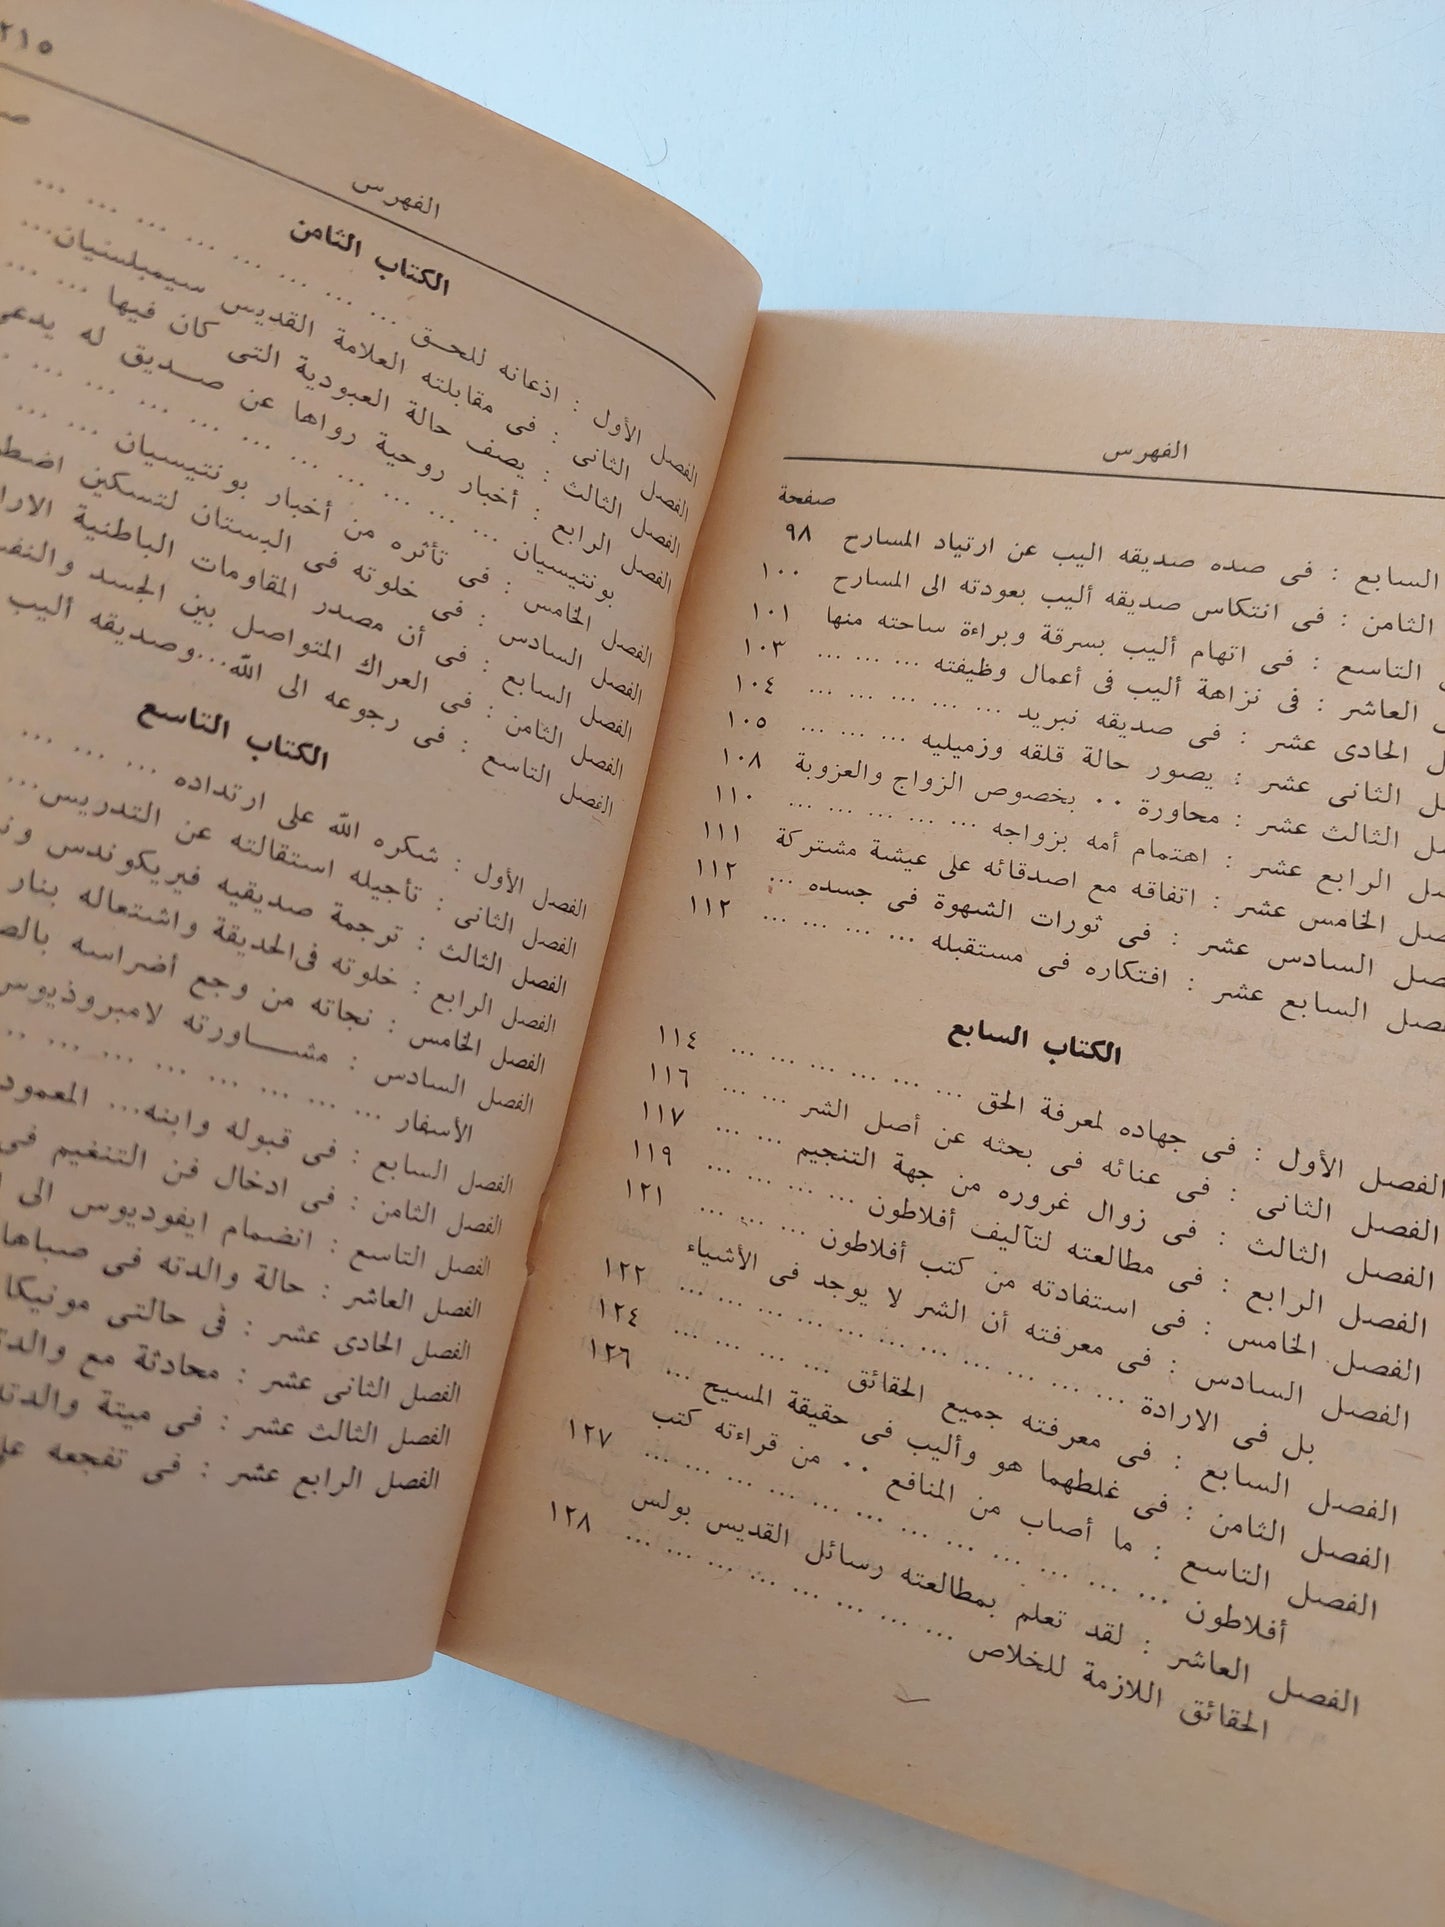 الفهرس
صفحة
السابع : فى صده صديقه اليب عن ارتياد المسارح ٩٨
الثامن : فى انتكاس صديقه أليب بعودته الى المسارح ١٠٠
التاسع : فى اتهام أليب بسرقة وبراءة ساحته منها ١٠١
العاشر : فى نزاهة أليب فى أعمال وظيفته ... ... ... ١٠٣
الحادى عشر : فى صديقه نبريد ... ... ... ... ... ١٠٤
الثانى عشر : يصور حالة قلقه وزميليه ... ... ... ١٠٥
الثالث عشر : محاورة ٠٠ بخصوص الزواج والعزوبة ١٠٨
الرابع عشر : اهتمام أمه بزواجه ... ... ... ... ... ١١٠
الخامس عشر : اتفاقه مع اصدقائه على عيشة مشتركة ١١١
السادس عشر : فى ثورات الشهوة فى جسده ... ١١٢
السابع عشر : افتكاره فى مستقبله ... ... ... ... ١١٢
الكتاب السابع
الفصل الأول : فى جهاده لمعرفة الحق ... ... ... ... ... ... ١١٤
الفصل الثانى : فى عنائه فى بحثه عن أصل الشر ... ... ١١٦
الفصل الثالث : فى زوال غروره من جهة التنجيم ... ... ١١٧
الفصل الرابع : فى مطالعته لتآليف أفلاطون ... ... ... ... ١١٩
الفصل الخامس : فى استفادته من كتب أفلاطون ... ... ... ١٢١
الفصل السادس : فى معرفته أن الشر لا يوجد فى الأشياء
بل فى الارادة ... ... ... ... ... ... ... ... ... ... ... ١٢٢
الفصل السابع : فى معرفته جميع الحقائق ... ... ... ... ١٢٤
الفصل الثامن : فى غلطهما هو وأليب فى حقيقة المسيح ... ١٢٦
الفصل التاسع : ما أصاب من المنافع ٠٠ من قراءته كتب
أفلاطون ... ... ... ... ... ... ... ... ... ... ... ... ١٢٧
الفصل العاشر : لقد تعلم بمطالعته رسائل القديس بولس
الحقائق اللازمة للخلاص ... ... ... ... ... ... ... ... ١٢٨
٢١٥
الفهرس
الكتاب الثامن
الفصل الأول : اذعانه للحق ... ... ... ... ... ... ... ...
الفصل الثانى : فى مقابلته العلامة القديس سيمبلسيان...
الفصل الثالث : يصف حالة العبودية التى كان فيها ... ...
الفصل الرابع : أخبار روحية رواها عن صديق له يدعى
بونتيسيان ... ... ... ... ... ... ... ... ... ...
الفصل الخامس : فى تأثره من أخبار بونتيسيان ... ... ...
الفصل السادس : فى خلوته فى البستان لتسكين
الفصل السابع : فى أن مصدر المقاومات الباطنية
الفصل الثامن : فى العراك المتواصل بين الجسد
الفصل التاسع : فى رجوعه الى الله...وصديقه أليب
الكتاب التاسع
الفصل الأول : شكره الله على ارتداده ... ... ... ...
الفصل الثانى : تأجيله استقالته عن التدريس...
الفصل الثالث : ترجمة صديقيه فيريكوندس
الفصل الرابع : خلوته فى الحديقة واشتعاله بنار
الفصل الخامس : نجاته من وجع أضراسه
الفصل السادس : مشاورته لامبروذيوس
الأسفار ... ... ... ... ... ... ... ...
الفصل السابع : فى قبوله وابنه...
الفصل الثامن : فى ادخال فن التنغيم فى
الفصل التاسع : انضمام ايفوديوس الى
الفصل العاشر : حالة والدته فى صباها
الفصل الحادى عشر : فى حالتى مونيكا
الفصل الثانى عشر : محادثة مع
الفصل الثالث عشر : فى ميتة والدته
الفصل الرابع عشر : فى تفجعه